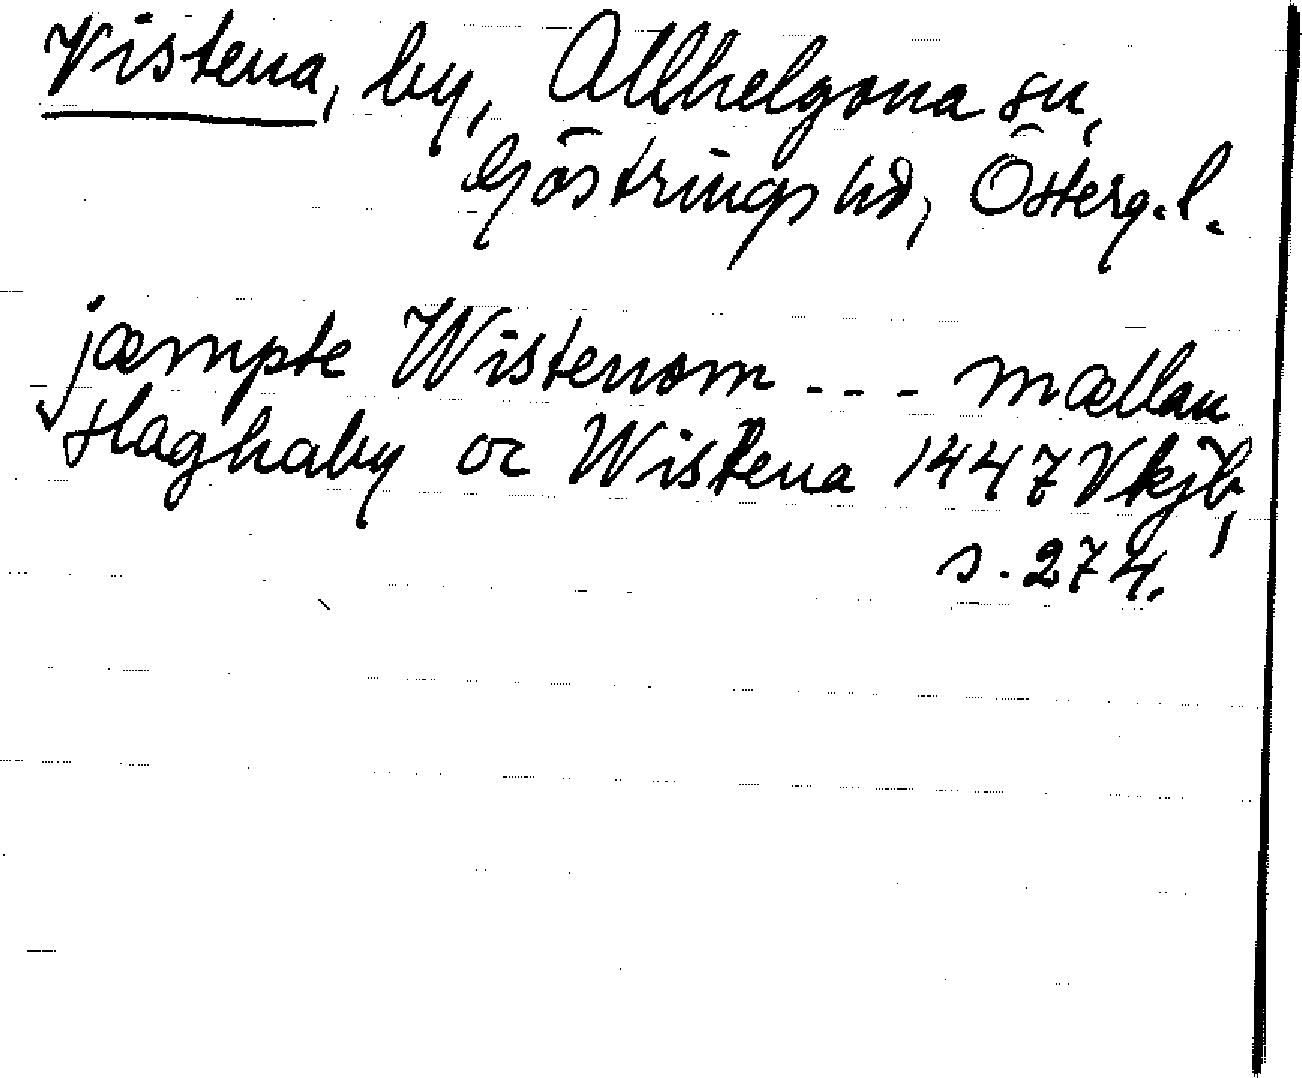 Vistena, by, Allhelgona sn,
Göstrings hd, Österg.l.
jæmpte Wistenom - - - mællan
Haghaby oc Wistena 1447 Vkjb,
s. 274.